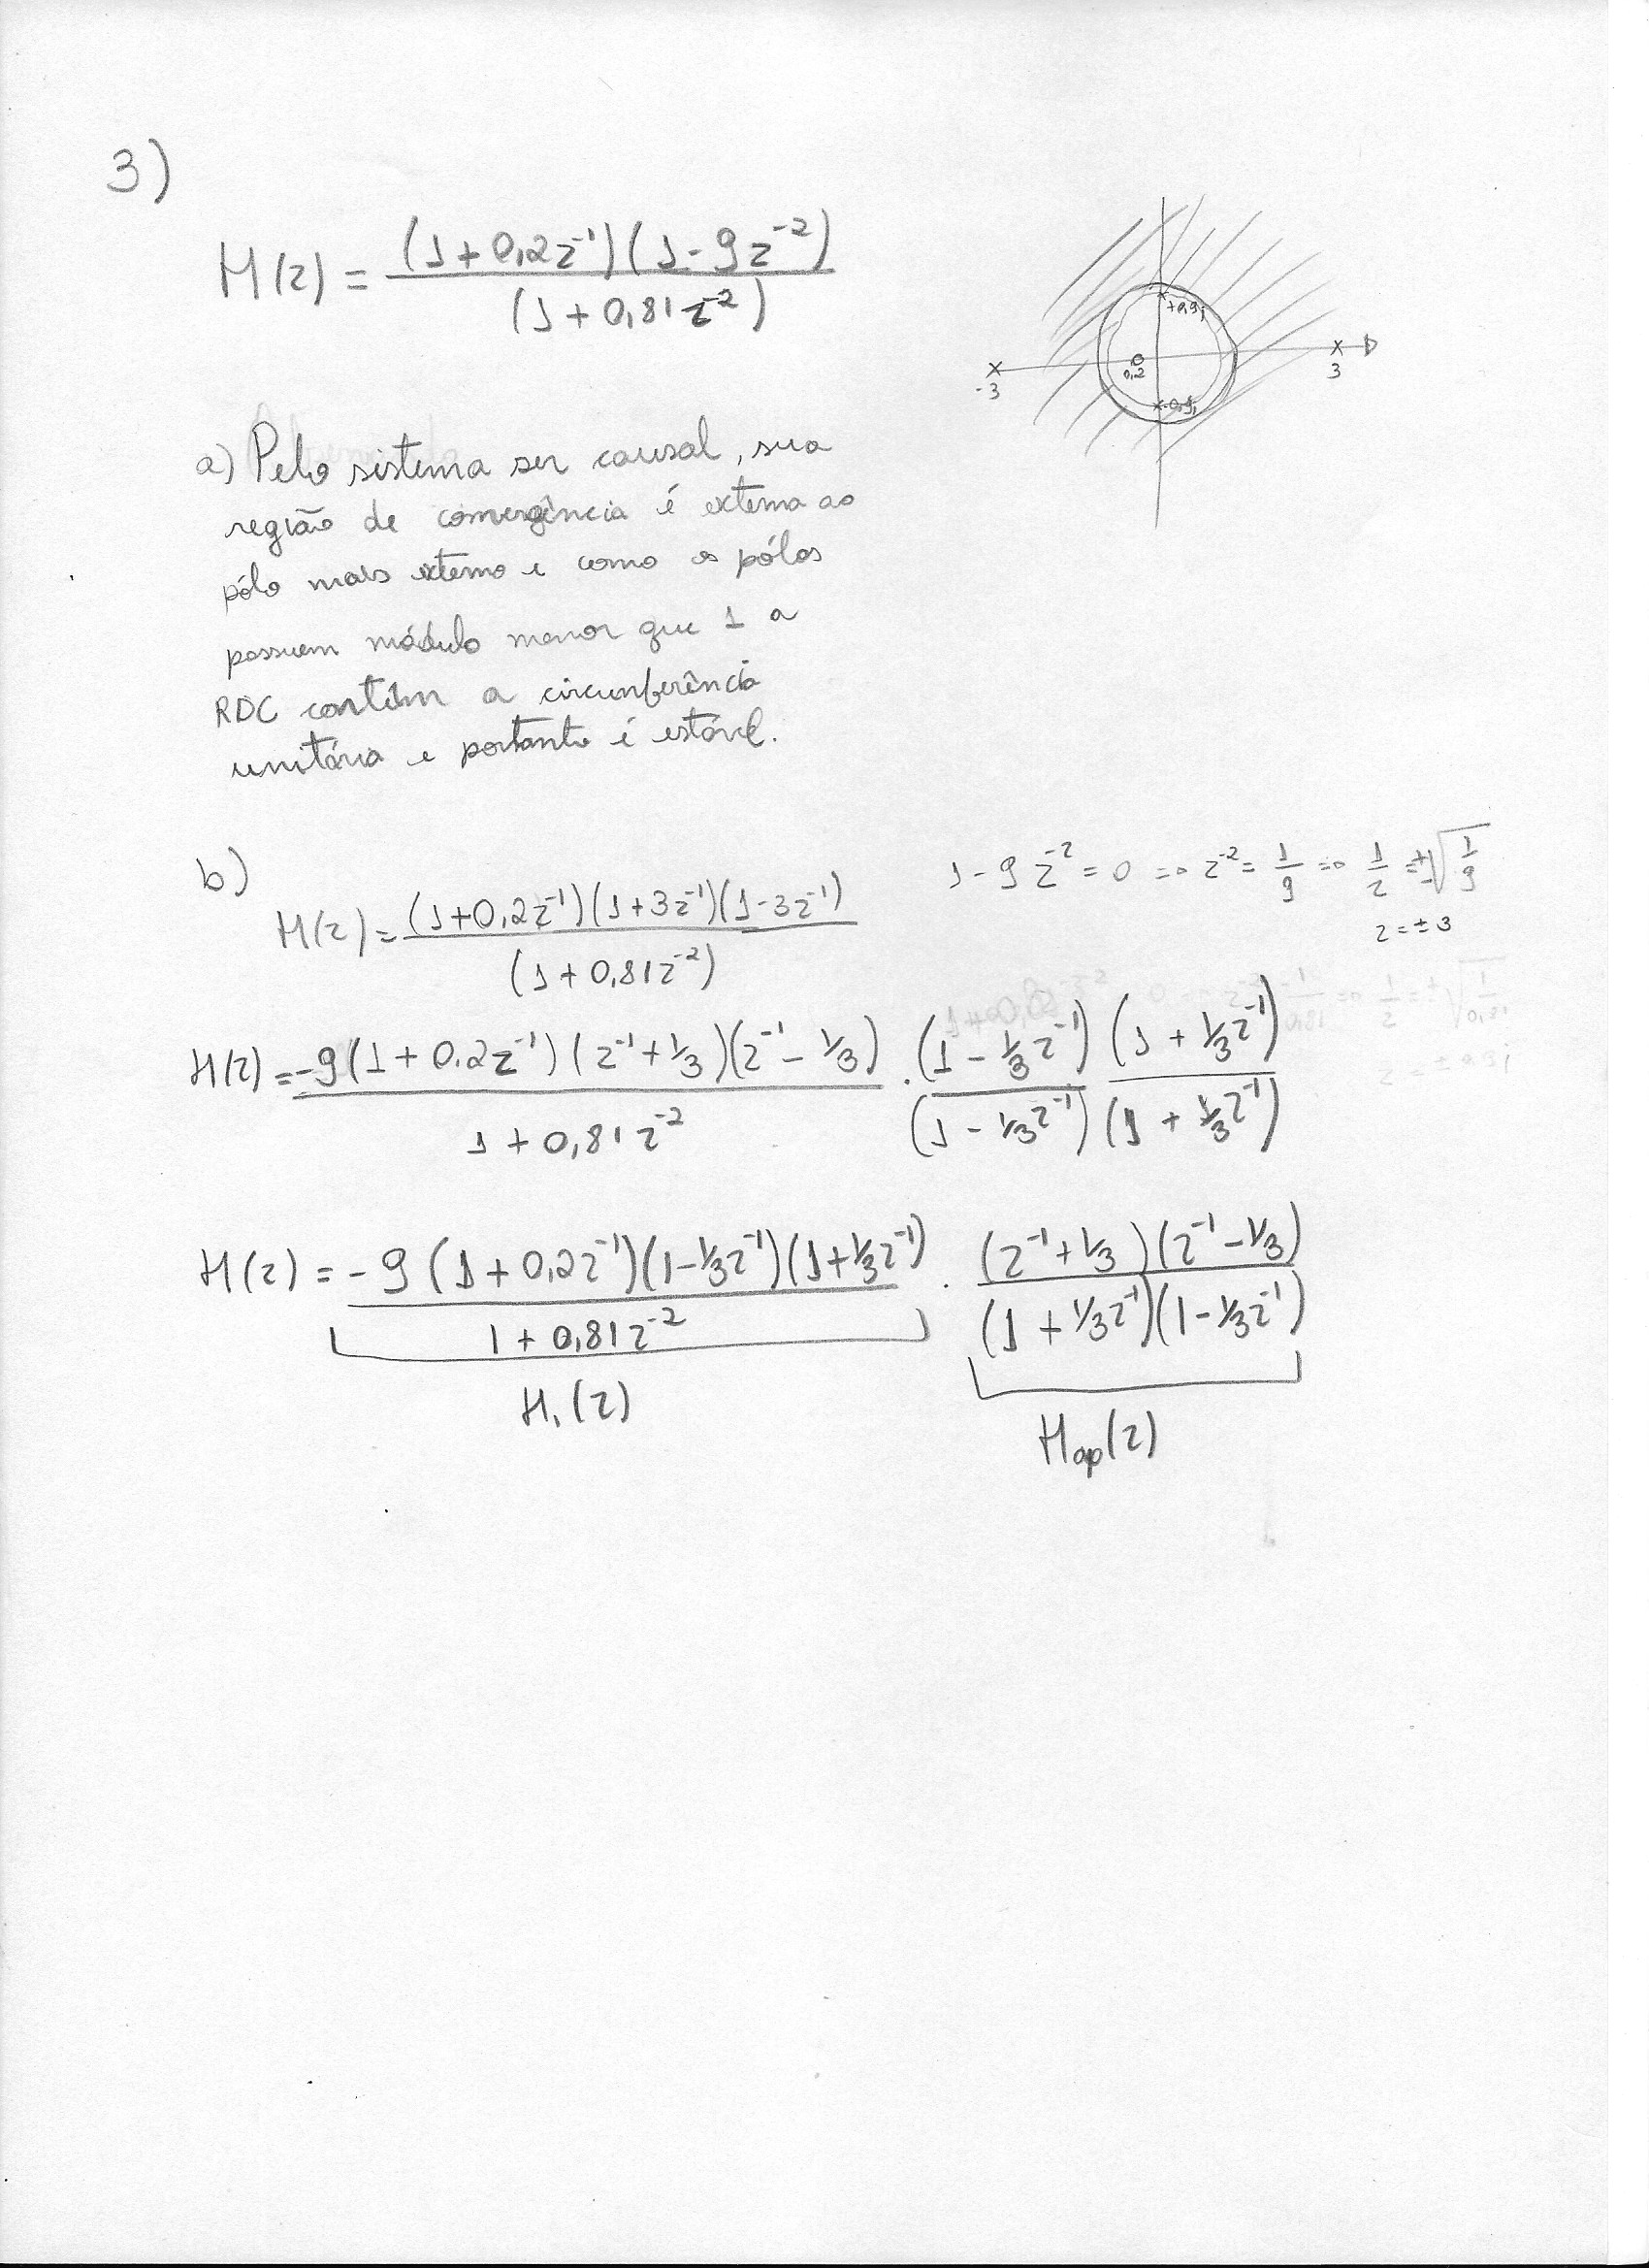 3)
H(z) = (1+0,2z^-1)(1-9z^-2) / (1+0,81z^-2)
+0,9j
-3 0,2 3
-0,9j
a) Pelo sistema ser causal, sua
região de convergência é externa ao
pólo mais externo e como os pólos
possuem módulo menor que 1 a
RDC contém a circunferência
unitária e portanto é estável.
1-9z^-2 = 0 => z^-2 = 1/9 => 1/z = ±√(1/9)
z = ±3
b)
H(z) = (1+0,2z^-1)(1+3z^-1)(1-3z^-1) / (1+0,81z^-2)
H(z) = -9(1+0.2z^-1)(z^-1+1/3)(z^-1-1/3) / 1+0,81z^-2 . (1-1/3z^-1)(1+1/3z^-1) / (1-1/3z^-1)(1+1/3z^-1)
H(z) = -9(1+0,2z^-1)(1-1/3z^-1)(1+1/3z^-1) / 1+0,81z^-2 . (z^-1+1/3)(z^-1-1/3) / (1+1/3z^-1)(1-1/3z^-1)
H₁(z) Hap(z)